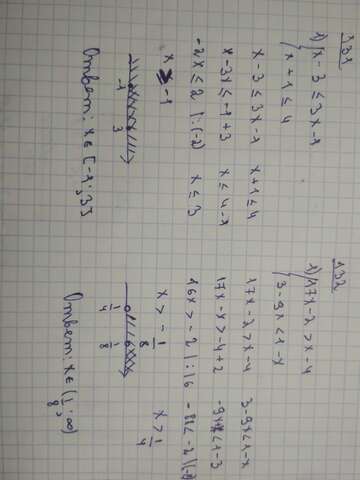 131
1) { x - 3 ≤ 3x - 1
x + 1 ≤ 4
x - 3 ≤ 3x - 1    x + 1 ≤ 4
x - 3x ≤ -1 + 3    x ≤ 4 - 1
-2x ≤ 2 | : (-2)    x ≤ 3
x ≥ -1
-1    3
Ответ: x ∈ [-1; 3]
132
1) { 17x - 2 > x - 4
3 - 9x < 1 - x
17x - 2 > x - 4    3 - 9x < 1 - x
17x - x > -4 + 2    -9x + x < 1 - 3
16x > -2 | : 16    -8x < -2 | (-8)
x > -1/8    x > 1/4
1/4    1/8
Ответ: x ∈ (1/8; ∞)